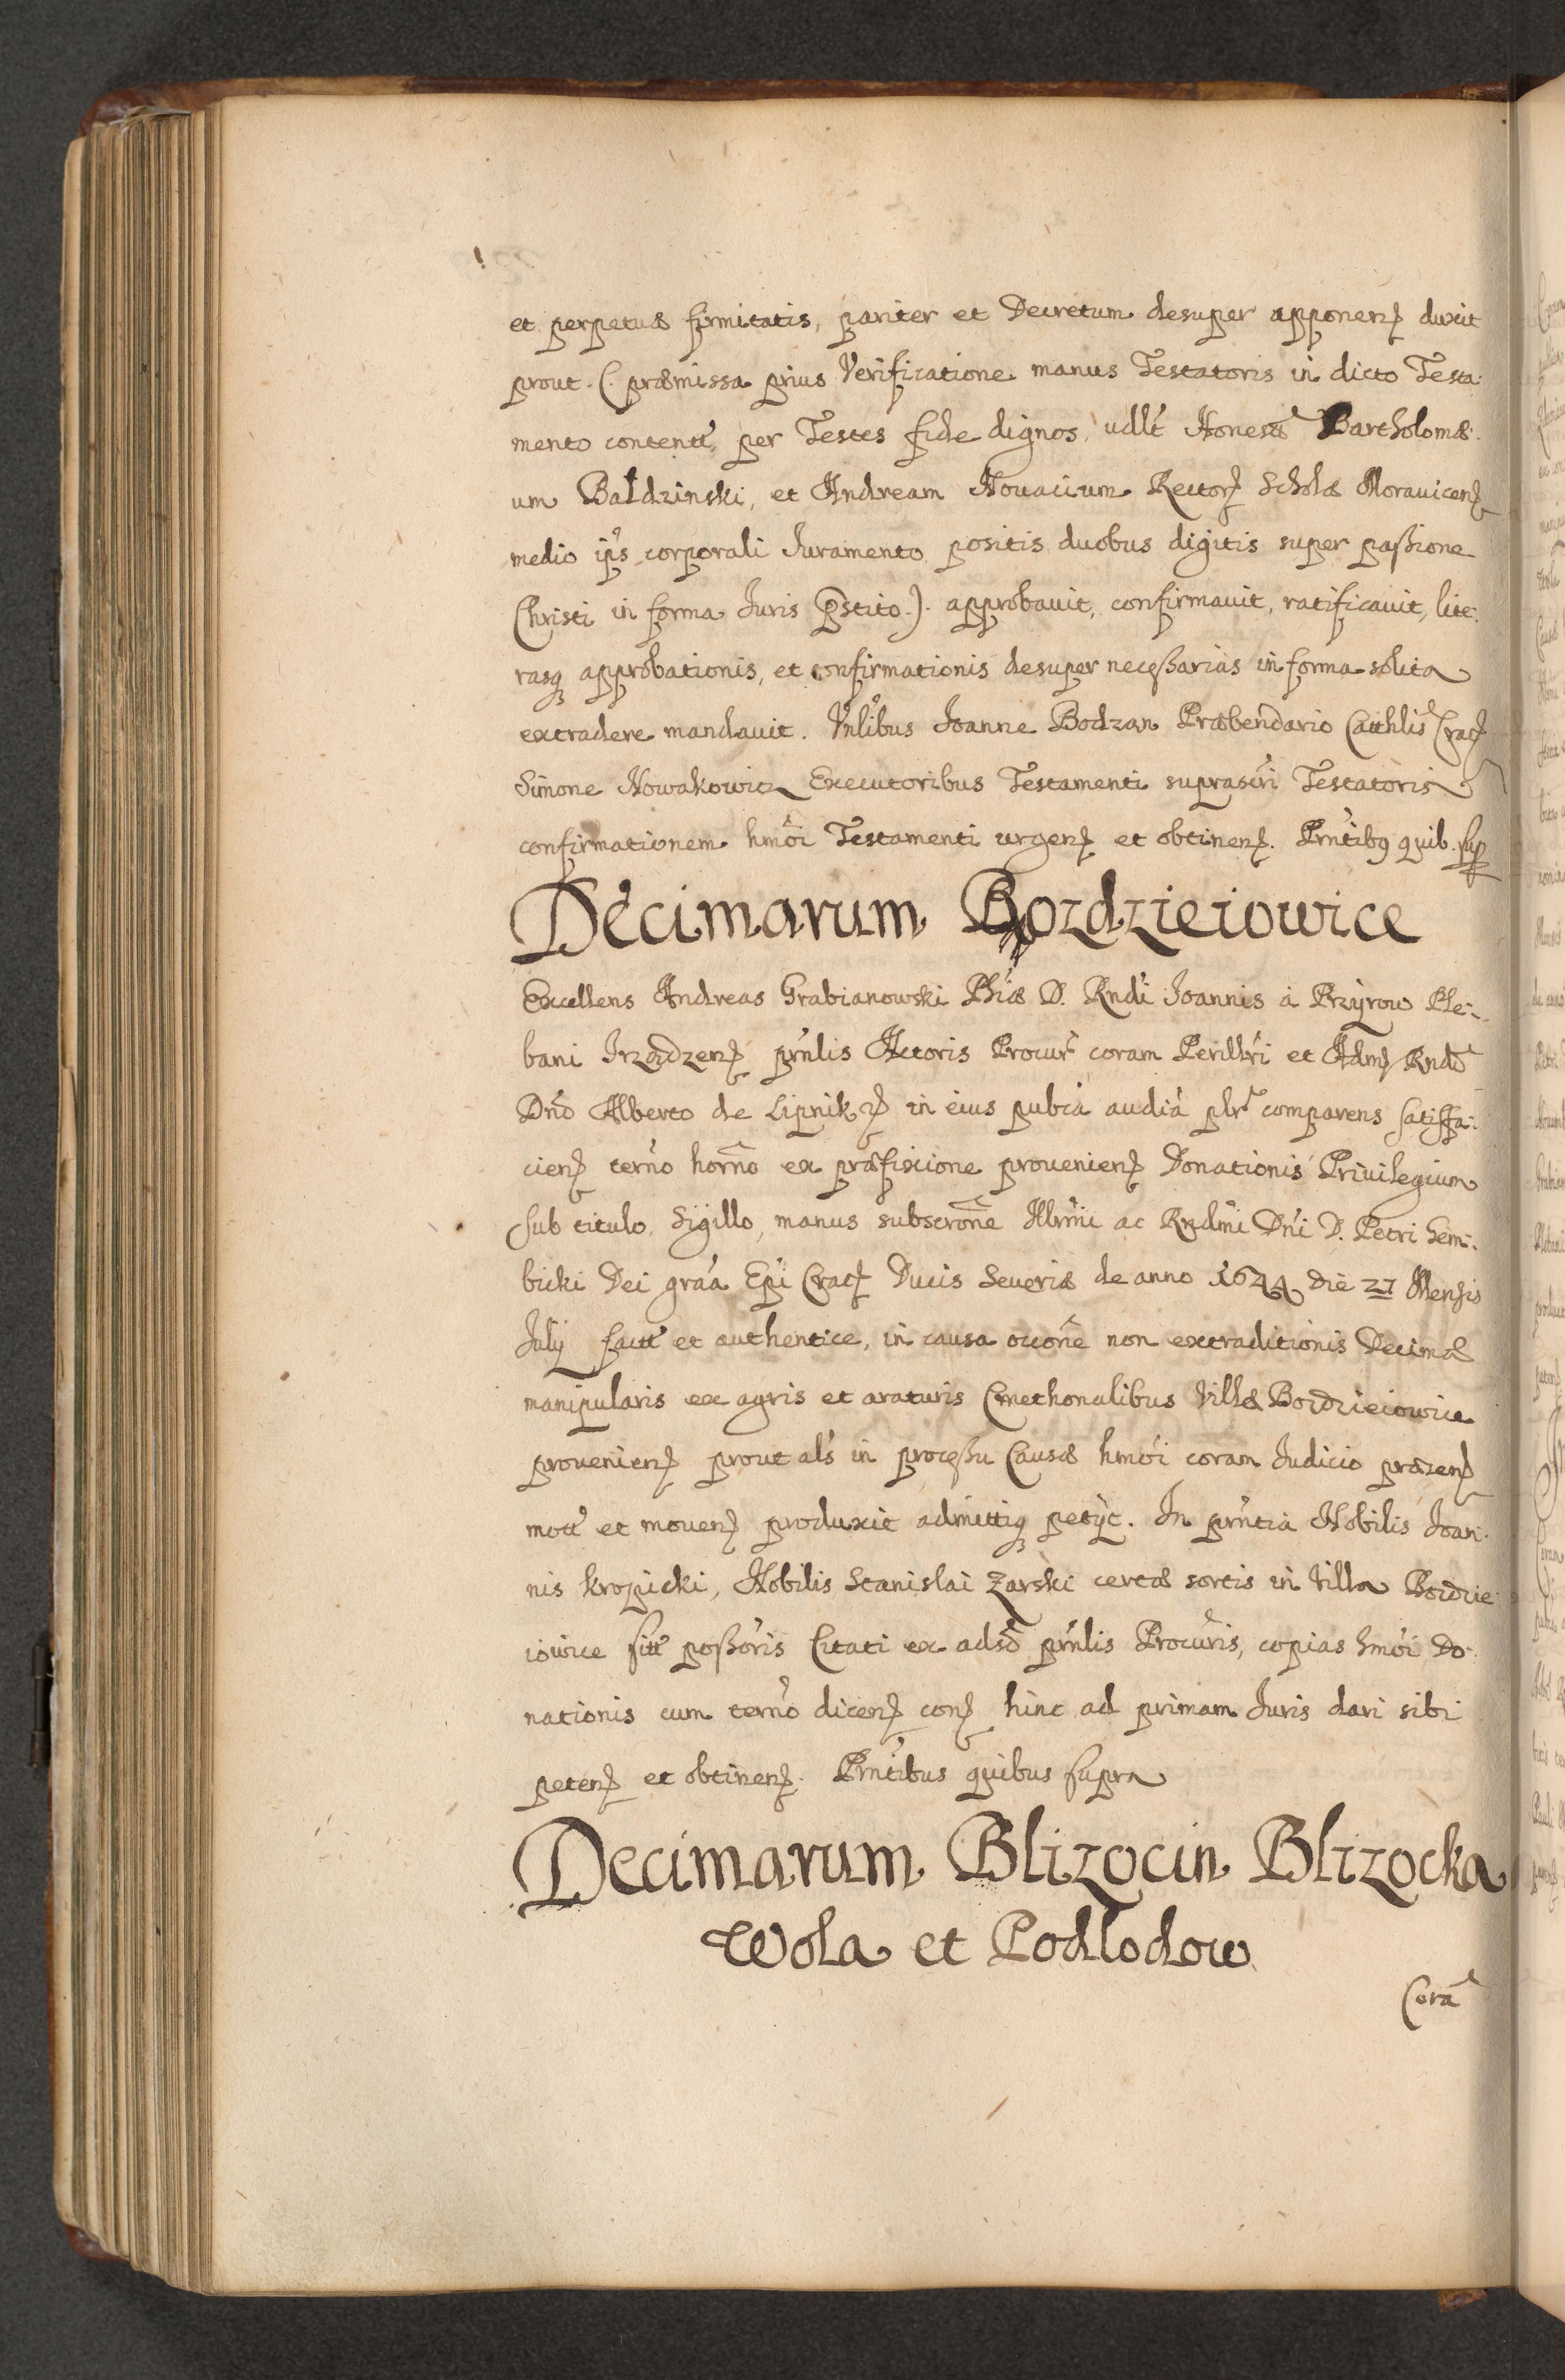 et perpetuæ firmitatis, pariter et Decretum desuper apponenꝫ duxit
prout (. præmissa prius Verificatione manus Testatoris in dicto Testa-
mento contentt. per Testes fide dignos, udlt Honestũ Bartholomæ-
um Baldzinski, et Andream Nouacium Rectorꝫ Scholæ Morauicenꝫ
medio ips corporali Juramento positis duobus digitis super paßione
Christi in forma Juris pstito.). approbauit, confirmauit, ratificauit, lite-
rasqꝫ approbationis, et confirmationis desuper neceßarias in forma solita
extradere mandauit. Vnlibus Joanne Bodzan Præbendario Catthlis Cracꝫ
Simone Nowakowicz Executoribus Testamenti suprascri Testatoris
confirmationem hmoi Testamenti urgenꝫ et obtinenꝫ. Prntibꝫ quib. sup
Decimarum Bozdzieiowice
Excellens Andreas Grabianowski Phiæ D. Rndi Joannis à Przyrow Ple-
bani Irządzenꝫ prnlis Actoris Procur coram Perillri et Admꝫ Rndo
Dno Alberto de Lipnikꝫ in eius pubca audia plr comparens satisfa-
cienꝫ termo horno ex præfixione prouenienꝫ Donationis Priuilegium
sub titulo, Sigillo, manus subscrone Illrmi ac Rndmi Dni D. Petri Gem-
bicki Dei graa Epi Cracꝫ Ducis Seueriæ de anno 1644 die 27 Mensis
July factt et authentice, in causa occone non extraditionis Decimæ
manipularis ex agris et araturis Cmethonalibus Villæ Bozdzieiowice
prouenienꝫ prout als in proceßu Causæ hmoi coram Judicio præzenꝫ
mott et mouenꝫ produxit admittiqꝫ petÿt. In prntia Nobilis Joan-
nis Kropicki, Nobilis Stanislai Zarski certæ sortis in Villa Bozdzie-
iowice sitt poßoris Citati ex adso prnlis Procuris, copias hmoi Do-
nationis cum termo dicenꝫ conꝫ hinc ad primam Juris dari sibi
petenꝫ et obtinenꝫ. Prntibus quibus supra
Decimarum Blizocin Blizocka
Wola et Podlodow
Corã